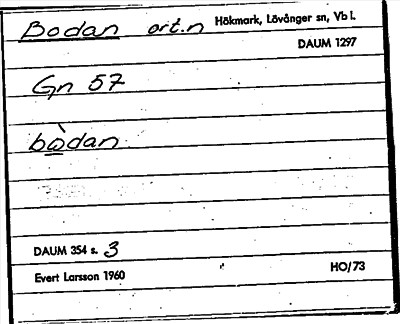 Bodan ort.n Hökmark, Lövånger sn, Vb l.
DAUM 1297
Gn 57
bò̲dan
DAUM 354 s. 3
Evert Larsson 1960 HO/73